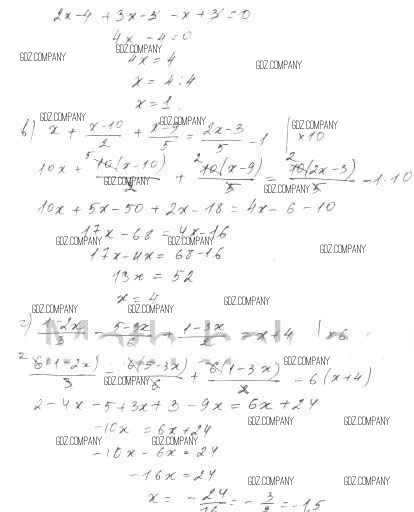 2x-4 + 3x-3 -x+3=0
4x -4=0
GDZ.COMPANY
4x = 4
GDZ.COMPANY
GDZ.COMPANY
x = 4:4
x = 1.
GDZ.COMPANY
GDZ.COMPANY
GDZ.COMPANY
в) x + x-10/2 + x-9/5 = 2x-3/5 -1 | ×10
10x + 5 10(x-10)/2 + 2 10(x-9)/5 = 2 10(2x-3)/5 -1·10
GDZ.COMPANY
GDZ.COMPANY
10x + 5x-50 + 2x-18 = 4x-6-10
17x-68 = 4x-16
GDZ.COMPANY
GDZ.COMPANY
GDZ.COMPANY
17x-4x= 68-16
13x = 52
x = 4
GDZ.COMPANY
GDZ.COMPANY
GDZ.COMPANY
г) 1-2x/3 - 5-3x/6 + 1-3x/2 = x+4 | ×6
GDZ.COMPANY
2 6(1-2x)/3 - 6(5-3x)/6 + 6(1-3x)/2 = 6(x+4)
GDZ.COMPANY
2-4x-5+3x+3-9x=6x+24
GDZ.COMPANY
GDZ.COMPANY
-10x = 6x+24
GDZ.COMPANY
GDZ.COMPANY
-10x-6x=24
-16x=24
GDZ.COMPANY
GDZ.COMPANY
x = -24/16 = -3/2 = -1,5